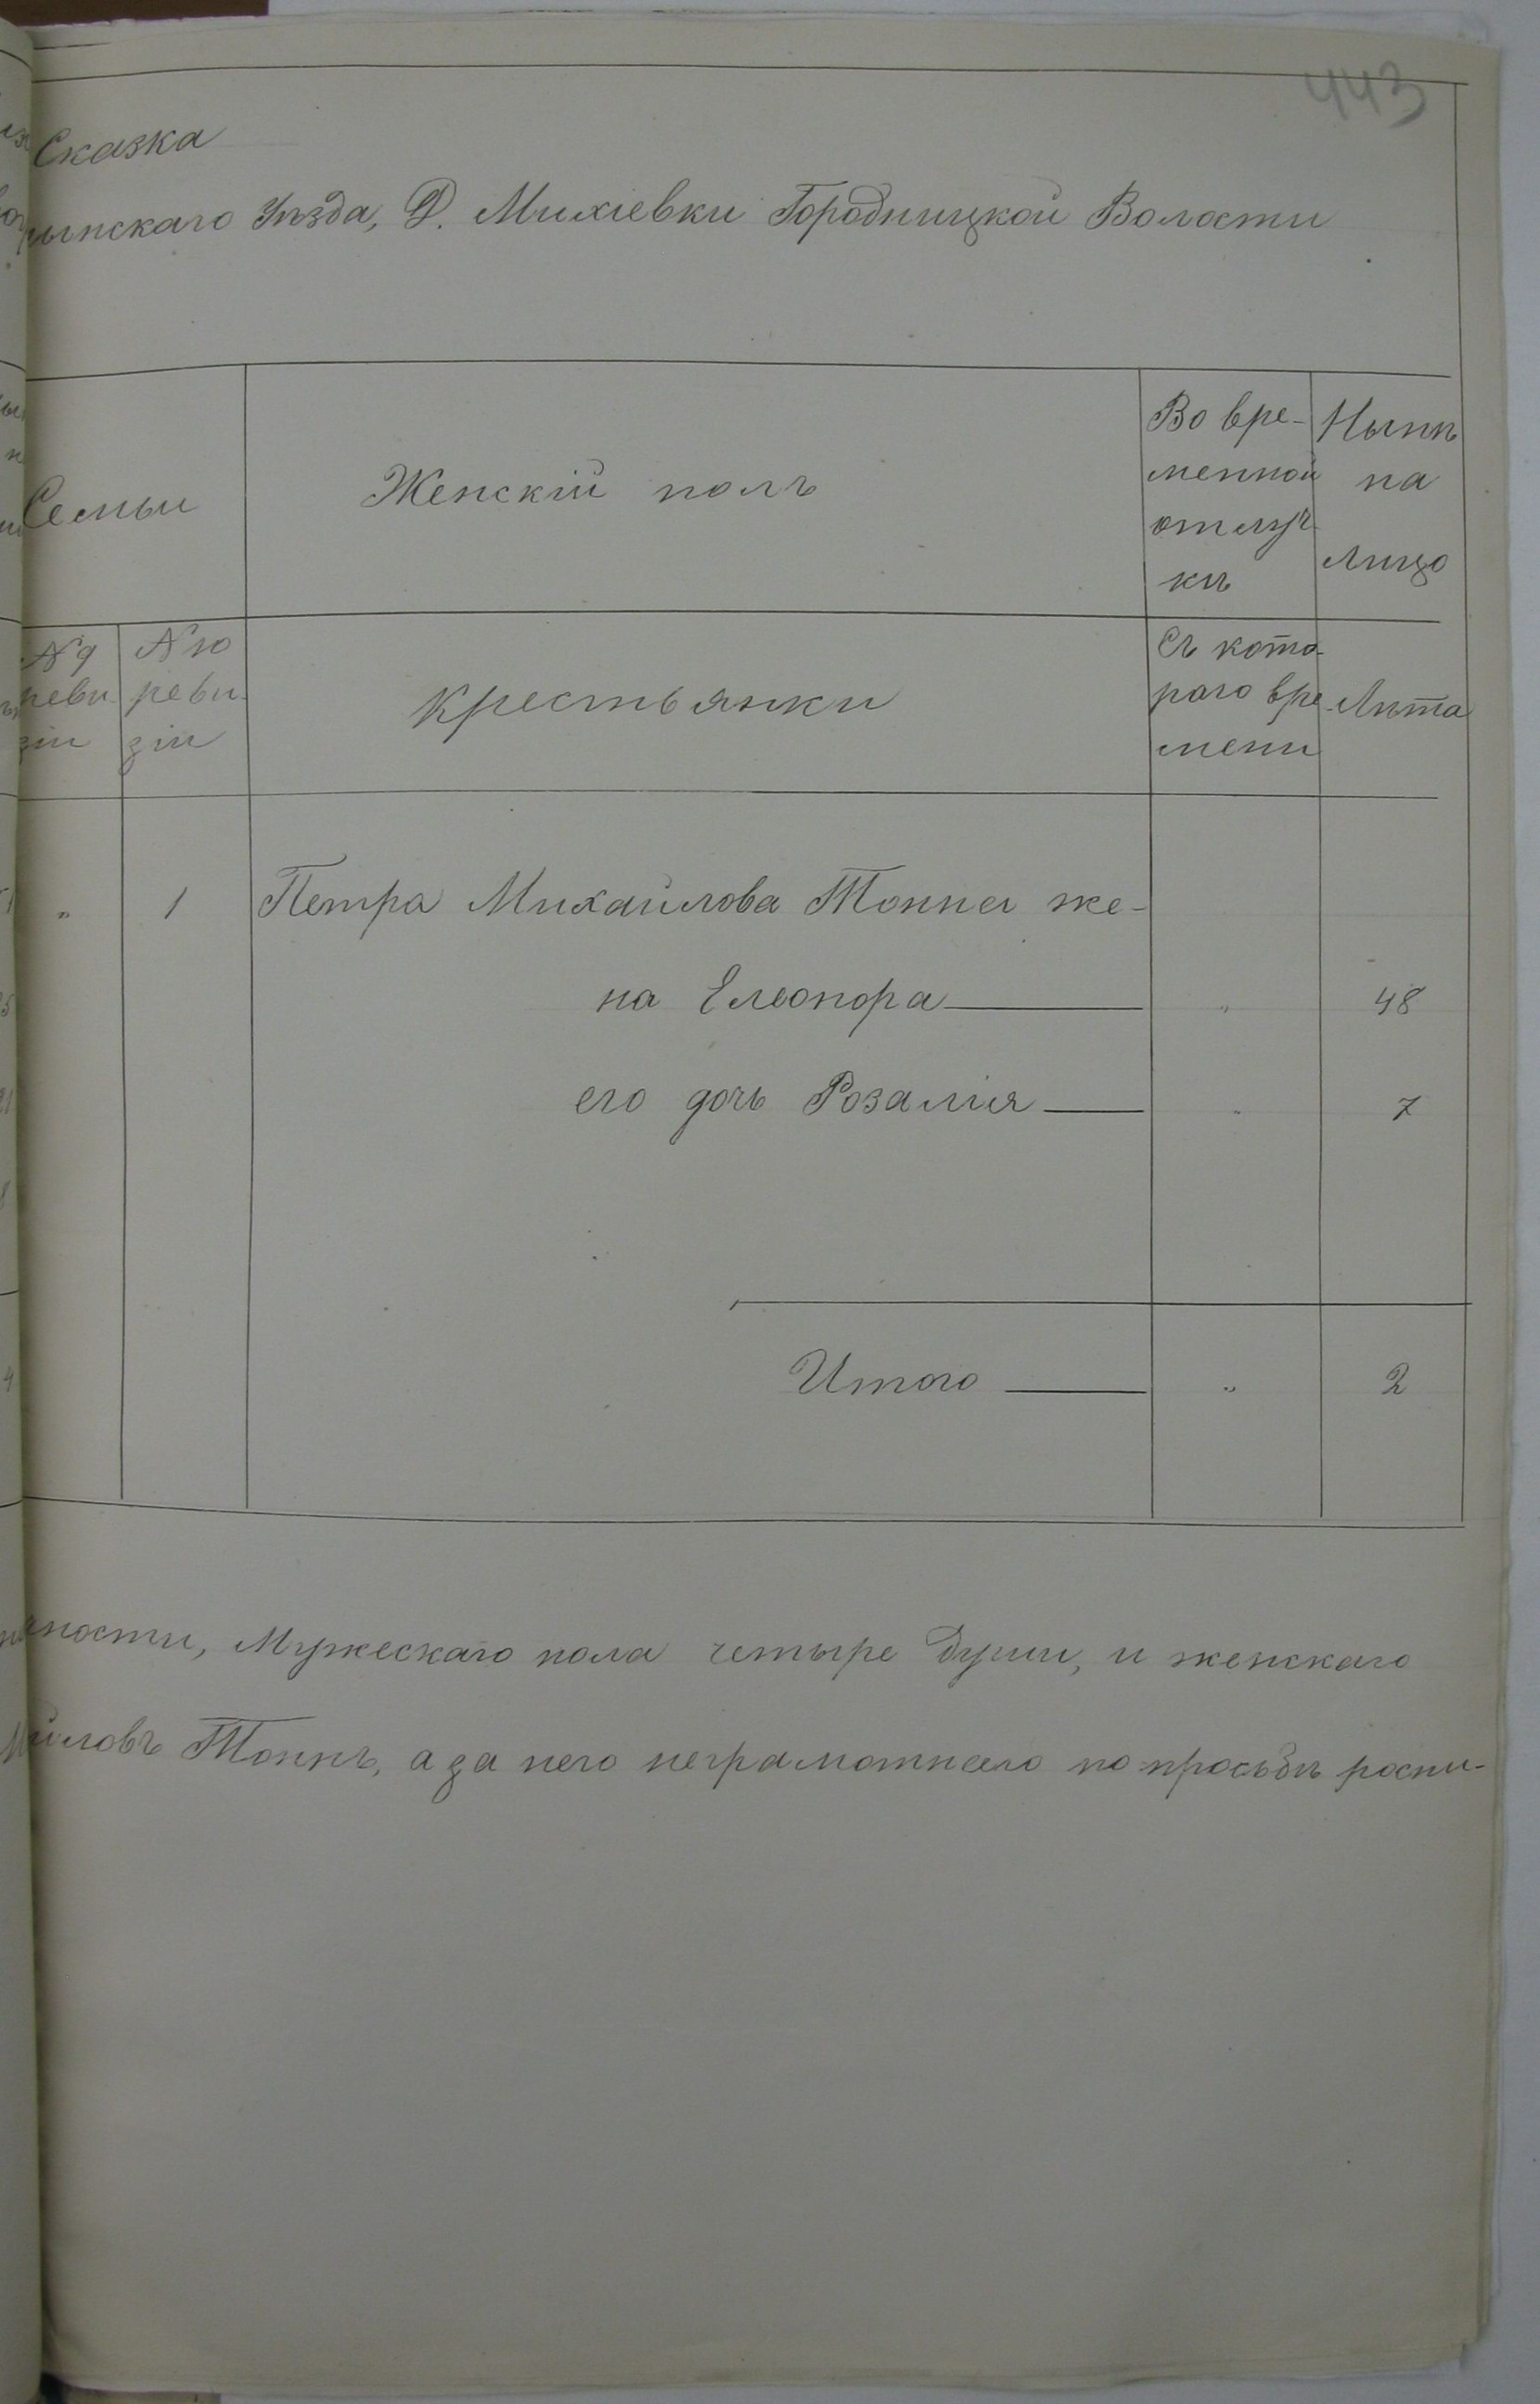 443
Сказка
лынскаго Уѣзда, Д. Михіевки Городницкой Волости
Семьи
Женскій полъ
Во вре-
менной
отлуч-
кѣ
Нынѣ
на
лицо
№ 9
реви-
зіи
№ 10
реви-
зіи
крестьянки
Съ кото-
раго вре-
мени
Лѣта
„ 1 Петра Михайлова Тонна же-
на Елеонора — „ 48
его дочь Розалія — „ 7
Итого — „ 2
ности, Мужескаго пола четыре души, и женскаго
йловъ Тоннъ, а за него неграмотнего по просьбѣ роспи-